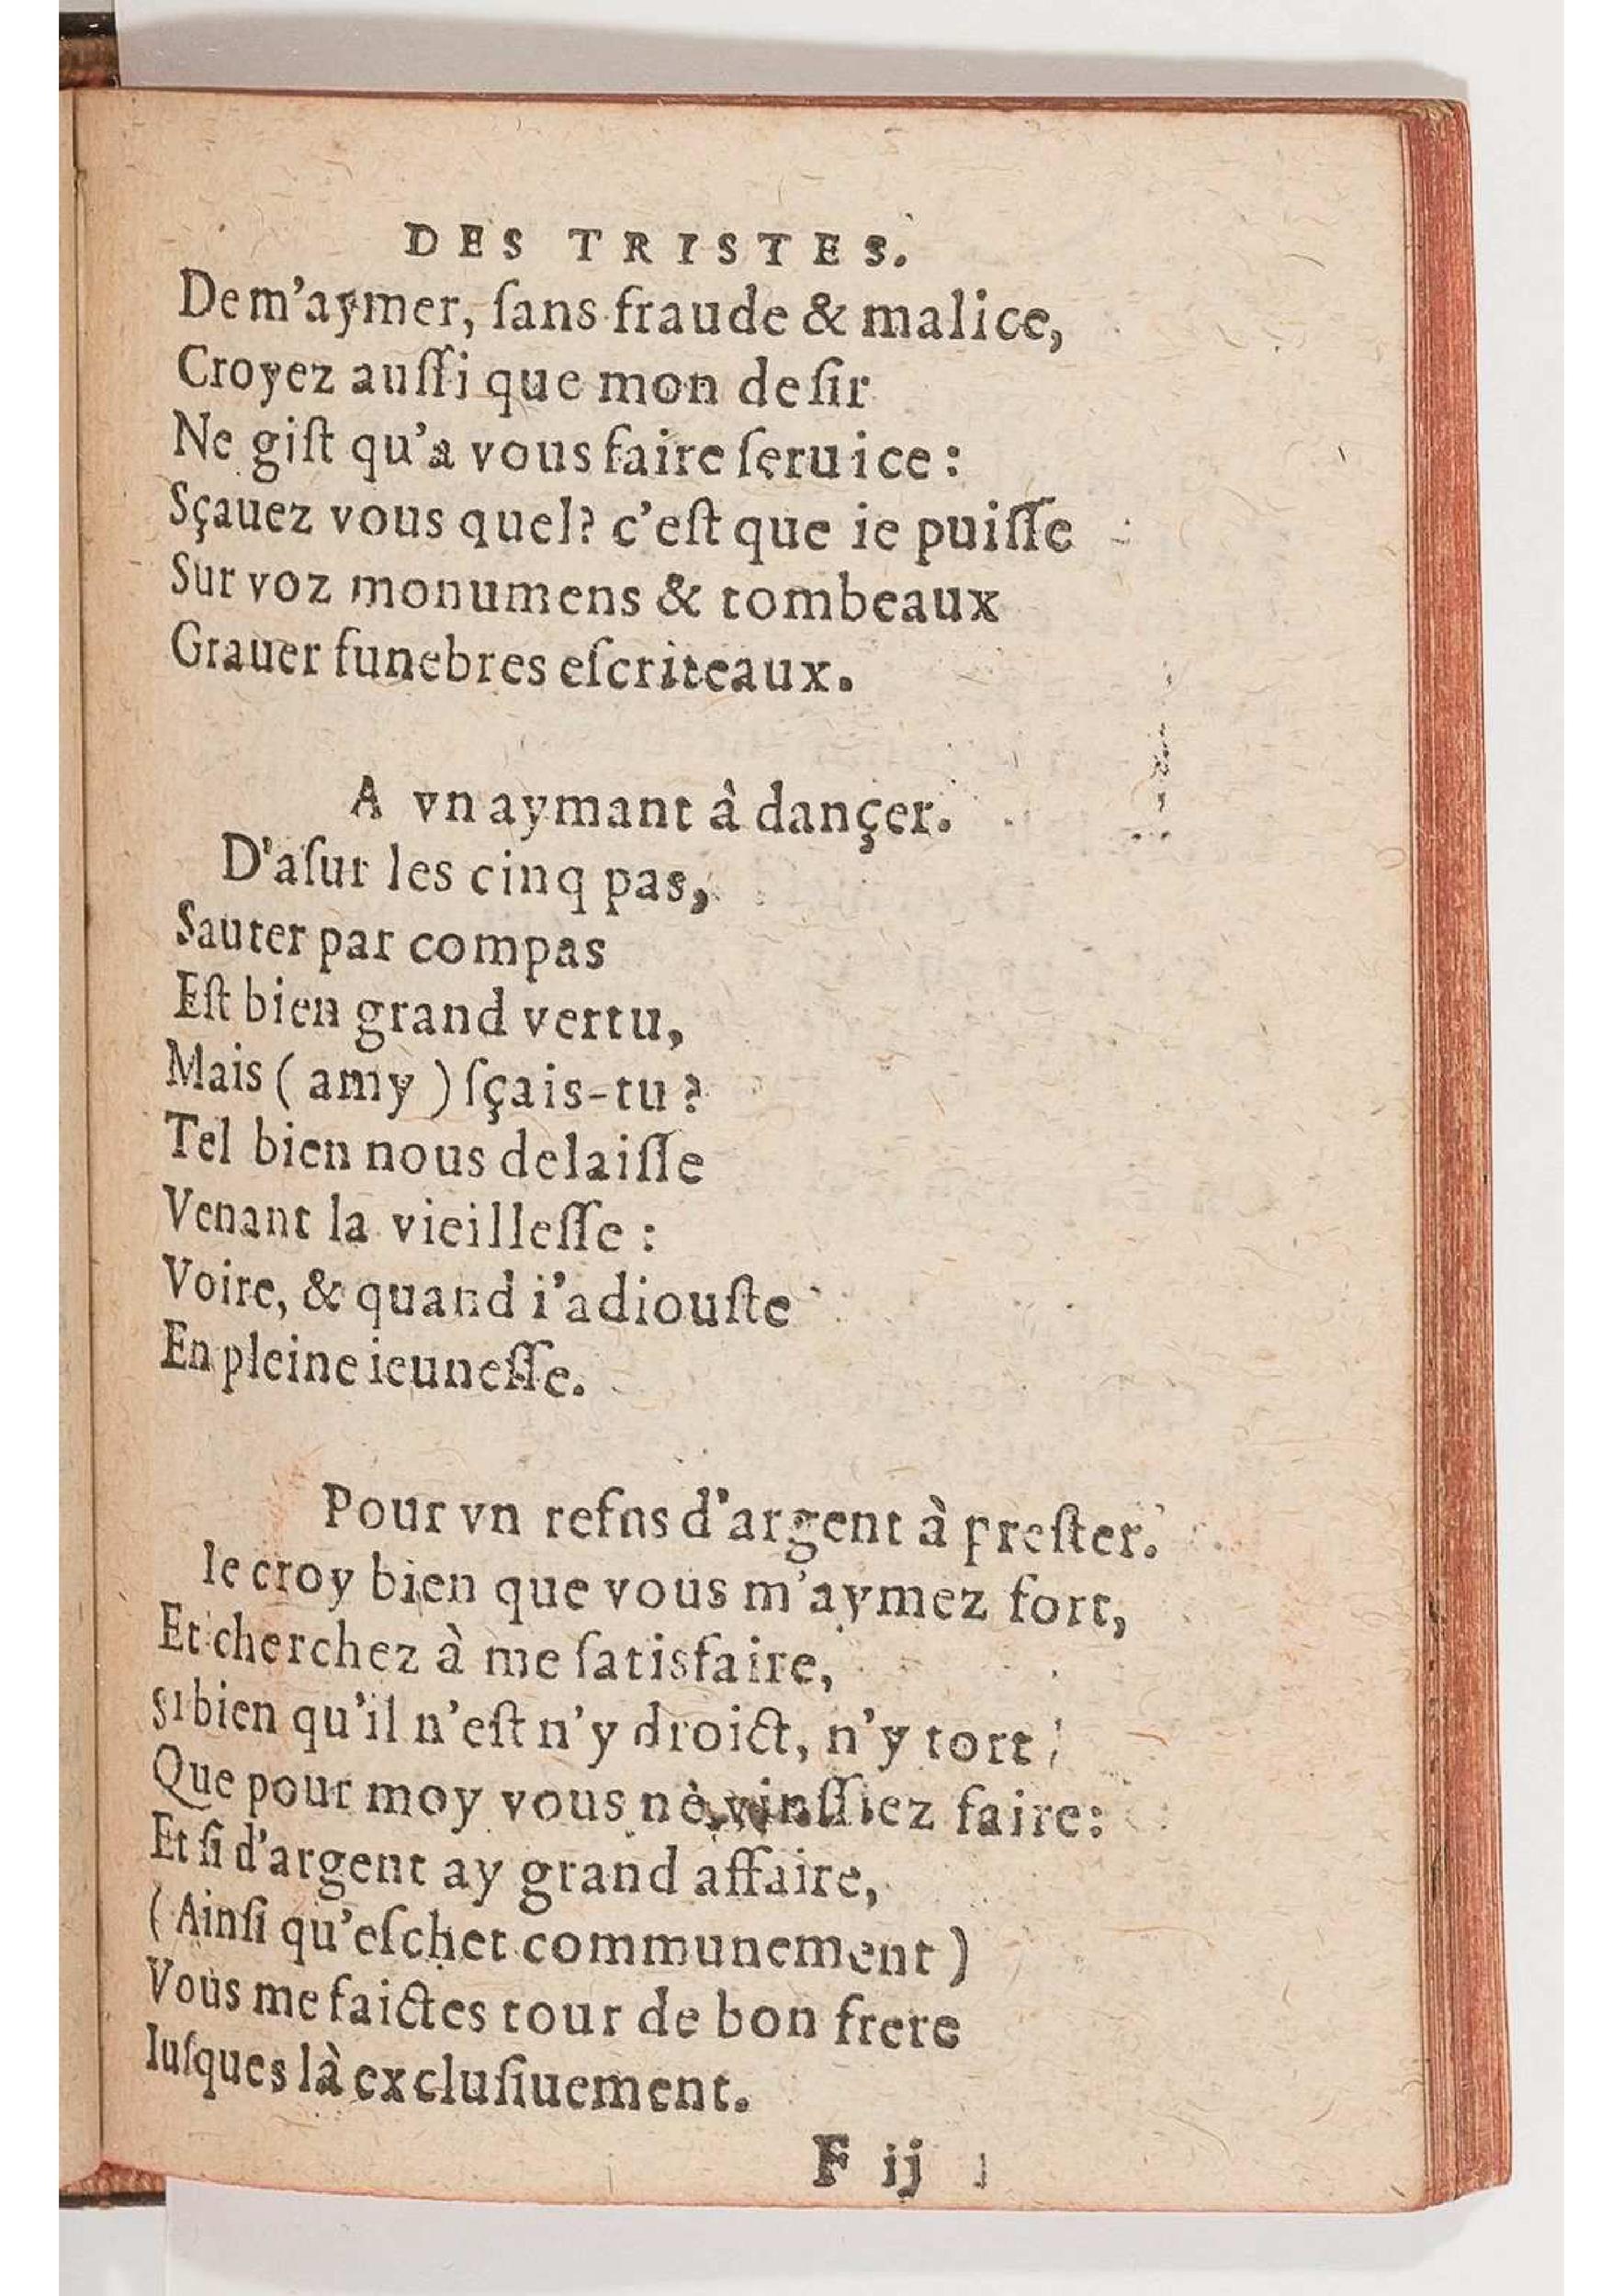 DES TRISTES.
De m'aymer, ſans fraude & malice,
Croyez auſſi que mon deſir
Ne giſt qu'a vous faire ſeruice :
Sçauez vous quel? c'eſt que ie puiſſe
Sur voz monumens & tombeaux
Grauer funebres eſcriteaux.
A vn aymant â dançer.
D'aſur les cinq pas,
Sauter par compas
Eſt bien grand vertu,
Mais ( amy ) ſçais-tu ?
Tel bien nous delaiſſe
Venant la vieilleſſe :
Voire, & quand i'adiouſte
En pleine ieuneſſe.
Pour vn refns d'argent à preſter.
Ie croy bien que vous m'aymez fort,
Et cherchez à me ſatisfaire,
Si bien qu'il n'eſt n'y droict, n'y tort
Que pour moy vous nè vinſſiez faire:
Et ſi d'argent ay grand affaire,
( Ainſi qu'eſchet communement )
Vous me faictes tour de bon frere
Iuſques là excluſiuement.
F ij